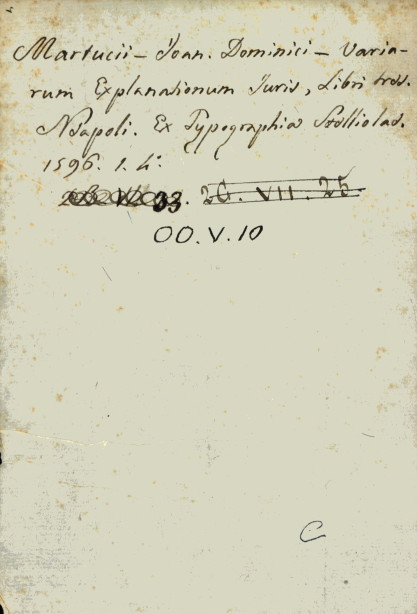 Martucii - Ioan. Dominici - Varia-
rum Explanationum Iuris, Libri tres.
Napoli. Ex Typographia Stelliolae.
1596. 1. 4°.
33. 2G. VII. 25
OO.V.10
C